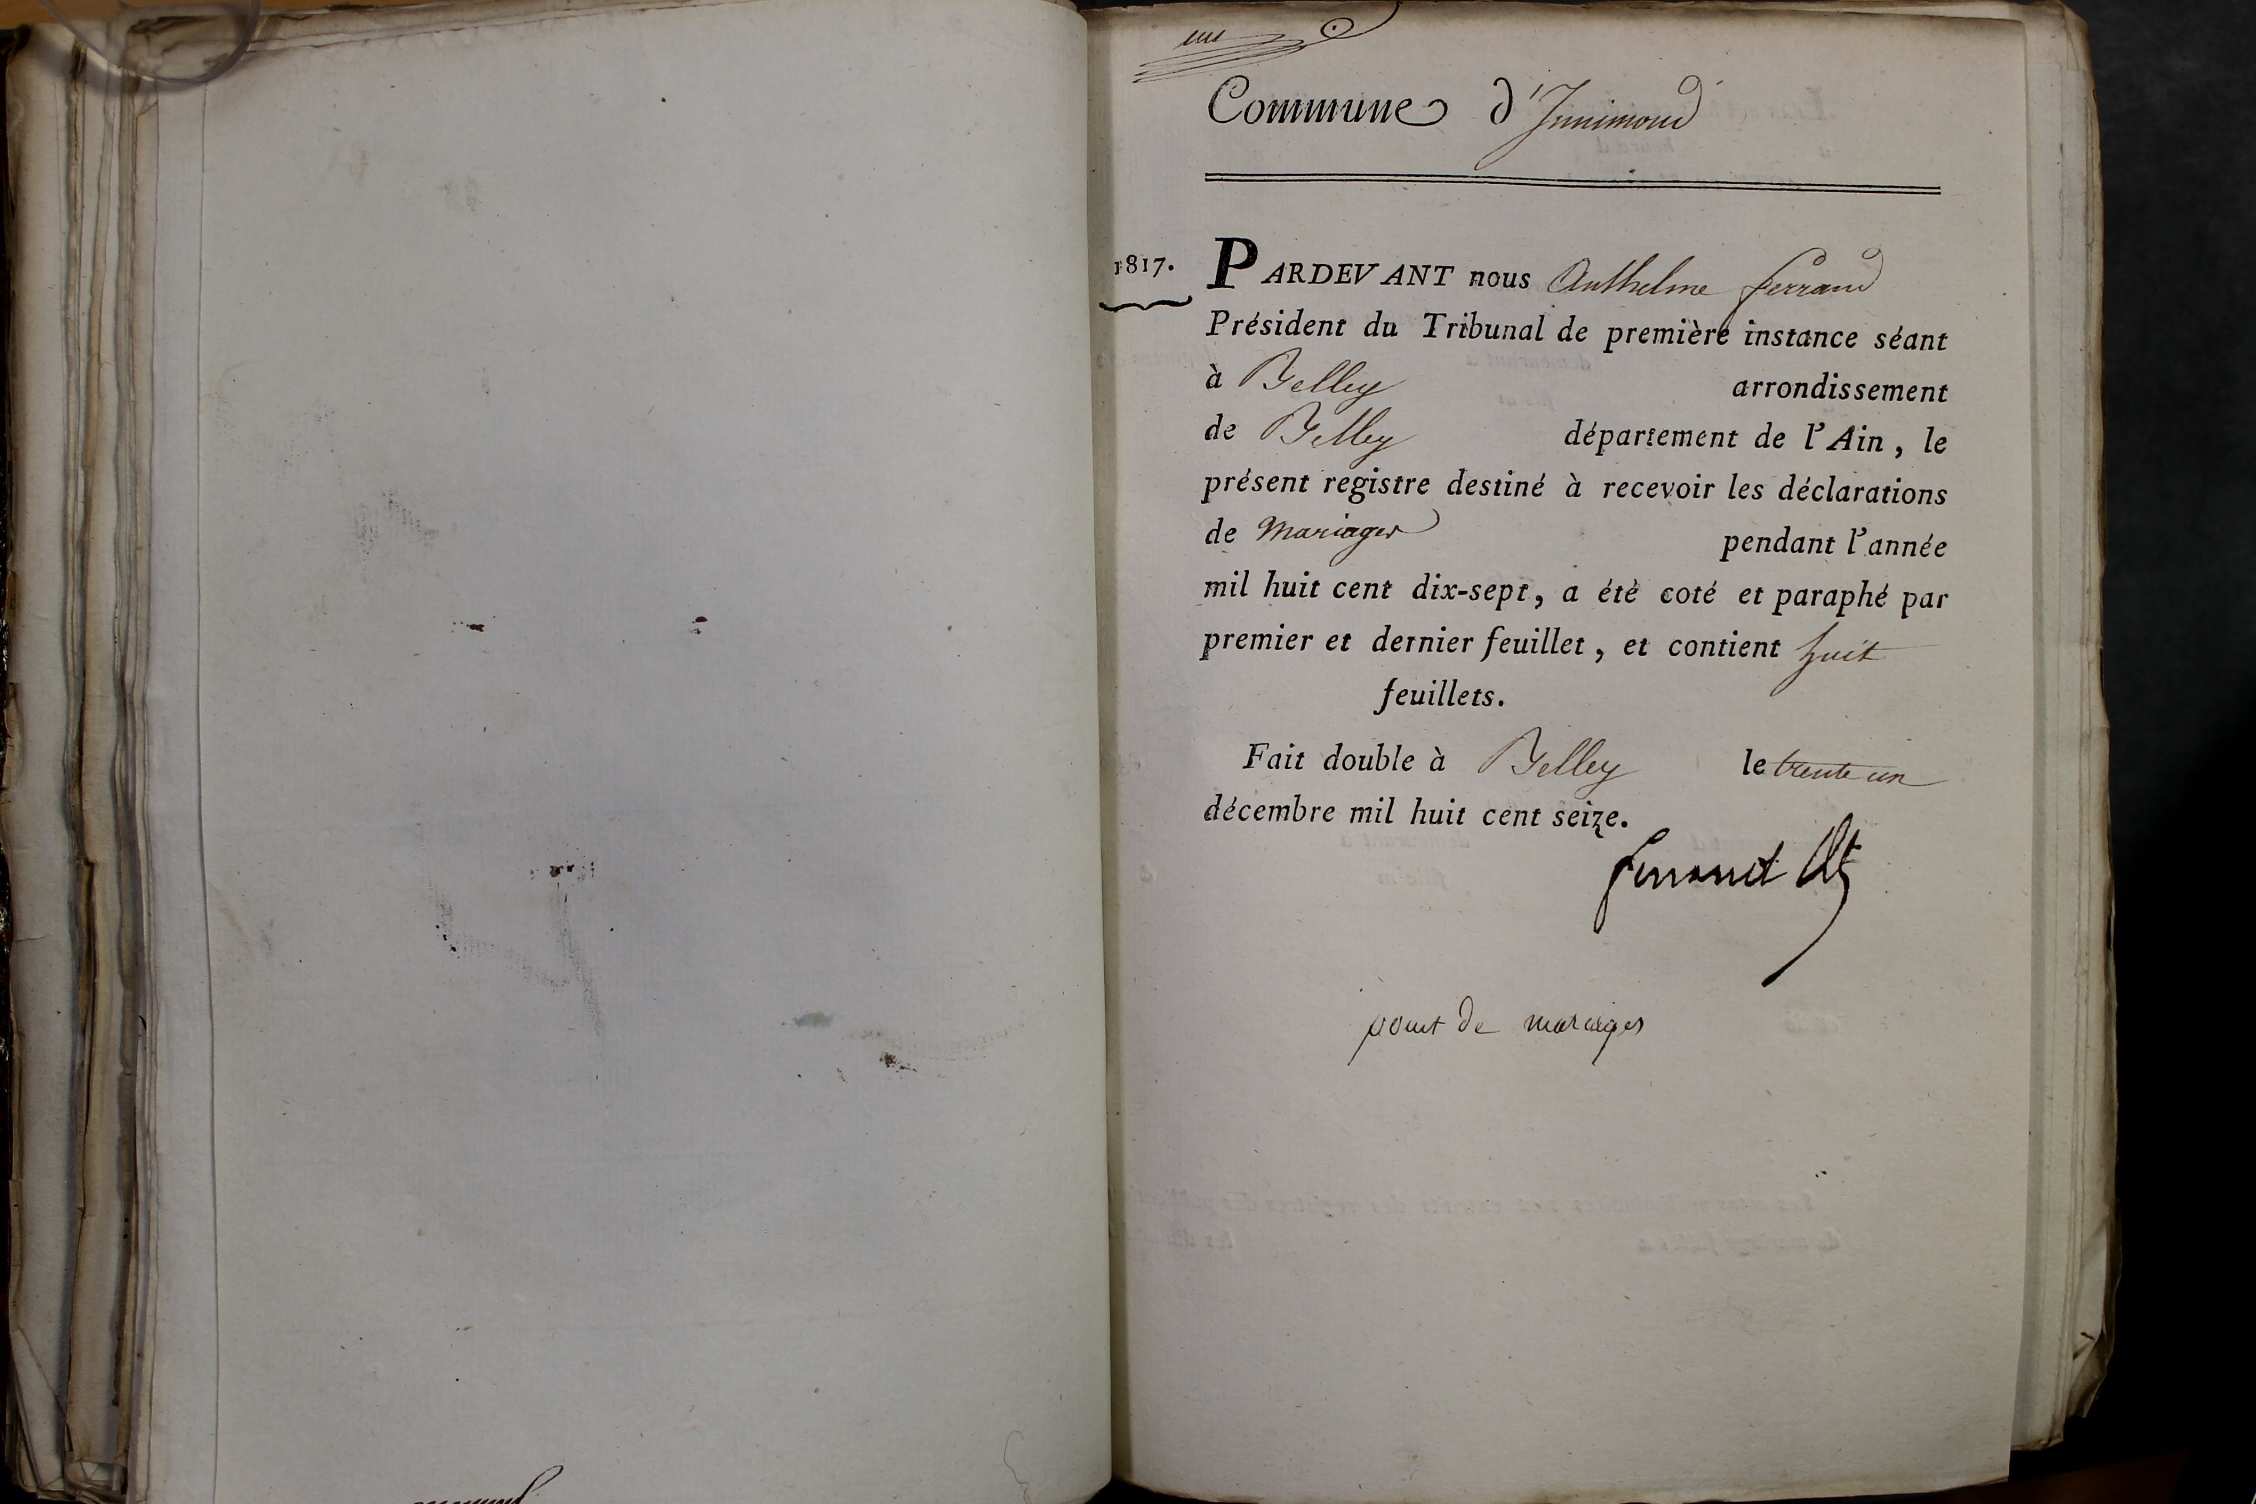 Commune d'Innimond
1817.
PARDEVANT nous Anthelme ferrand
Président du Tribunal de première instance séant
à Belley arrondissement
de Belley département de l'Ain, le
présent registre destiné à recevoir les déclarations
de mariages pendant l'année
mil huit cent dix-sept, a été coté et paraphé par
premier et dernier feuillet, et contient huit
feuillets.
Fait double à Belley le trente un
décembre mil huit cent seize.
ferrand
point de mariages